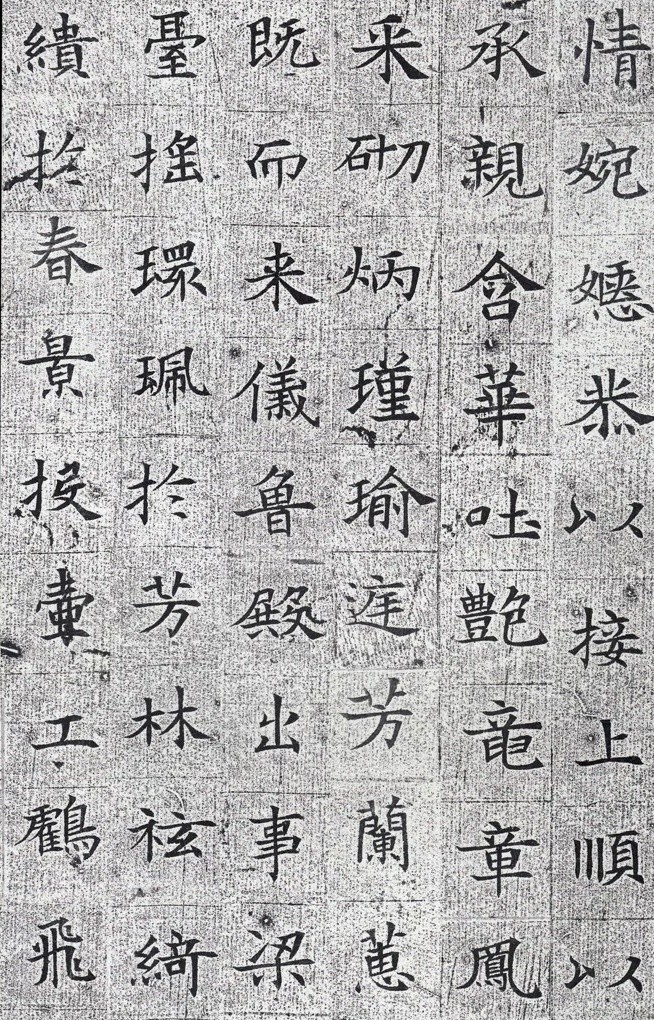 情婉嫕恭以接上順以
承親含華吐艶竜章鳳
采砌炳瑾瑜庭芳蘭蕙
既而来儀魯殿出事梁
臺搖環珮於芳林袨綺
繢於春景投壺工鸖飛